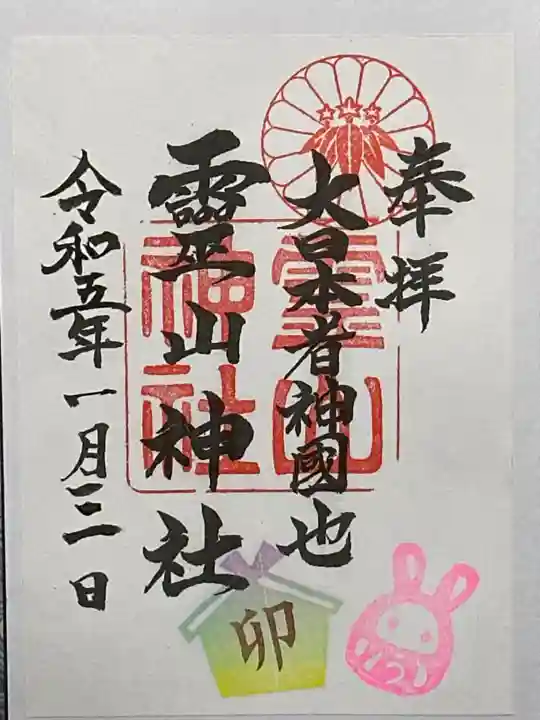 奉拝
大日本者神國也
靈山神社
令和五年一月三日
靈山
神社
卯